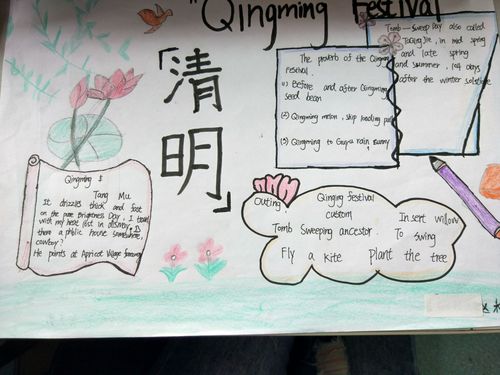 "Qingming Festival
「清明」
Tomb-Sweep Day also called
TaQing Jie, in mid spring
and late spring
and summer, 104 days
after the winter solstice
The proverb of the Qingming
Festival
(1) Before and after Qingming
seed bean
(2) Qingming melon, skip loading
(3) Qingming to Guyu rain, sunny
Qingming
Tang Mu
It drizzles thick and fast
on the pure Brightness Day, I travel
with my heart lost in dismay, Is
there a public house somewhere,
cowboy?
He points at Apricot Village faraway
Outing. Qinging festival
custom
Insert willow
Tomb Sweeping ancestor. To swing
Fly a kite plant the tree